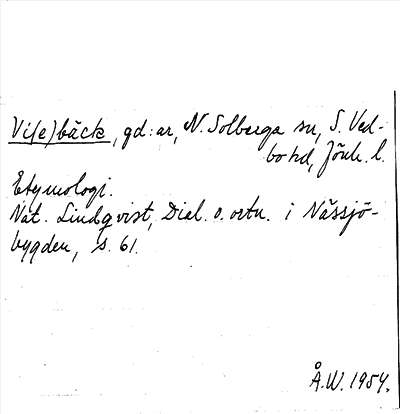 Vi(e)bäck, gd:ar, N. Solberga sn, S. Ved-
bo hd, Jönk. l.
Etymologi.
Nat. Lindqvist, Dial. o. ortn. i Nässjö-
bygden, s. 61.
Å.W. 1954.